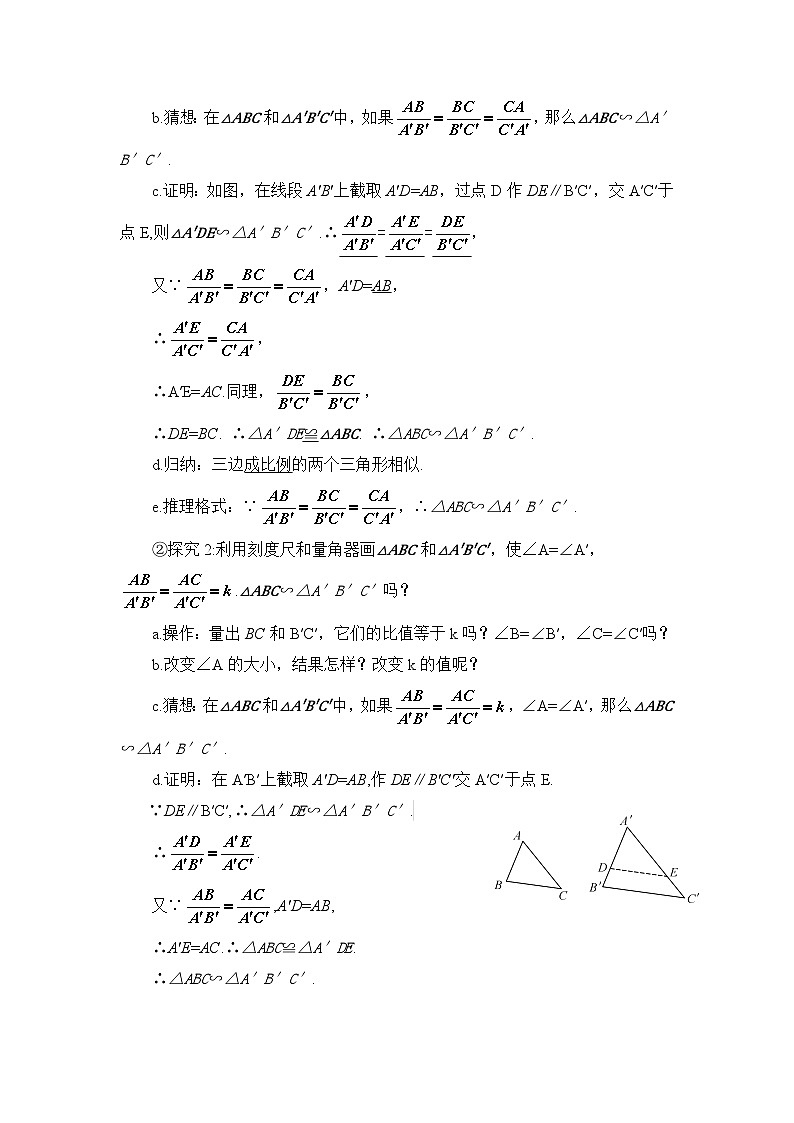 b.猜想:在△ABC和△A′B′C′中,如果AB/A′B′=BC/B′C′=CA/C′A′,那么△ABC∽△A′
B′C′.
c.证明:如图,在线段A′B′上截取A′D=AB,过点D作DE∥B′C′,交A′C′于
点E,则△A′DE∽△A′B′C′.∴A′D/A′B′=A′E/A′C′=DE/B′C′,
又∵AB/A′B′=BC/B′C′=CA/C′A′,A′D=AB,
∴A′E/A′C′=CA/C′A′,
∴A′E=AC.同理,DE/B′C′=BC/B′C′,
∴DE=BC.∴△A′DE≌△ABC.∴△ABC∽△A′B′C′.
d.归纳:三边成比例的两个三角形相似.
e.推理格式:∵AB/A′B′=BC/B′C′=CA/C′A′,∴△ABC∽△A′B′C′.
②探究2:利用刻度尺和量角器画△ABC和△A′B′C′,使∠A=∠A′,
AB/A′B′=AC/A′C′=k.△ABC∽△A′B′C′吗?
a.操作:量出BC和B′C′,它们的比值等于k吗?∠B=∠B′,∠C=∠C′吗?
b.改变∠A的大小,结果怎样?改变k的值呢?
c.猜想:在△ABC和△A′B′C′中,如果AB/A′B′=AC/A′C′=k,∠A=∠A′,那么△ABC
∽△A′B′C′.
d.证明:在A′B′上截取A′D=AB,作DE∥B′C′交A′C′于点E.
∵DE∥B′C′,∴△A′DE∽△A′B′C′.
∴A′D/A′B′=A′E/A′C′.
又∵AB/A′B′=AC/A′C′,A′D=AB,
∴A′E=AC.∴△ABC≌△A′DE.
∴△ABC∽△A′B′C′.
A
B
C
A′
D
E
B′
C′